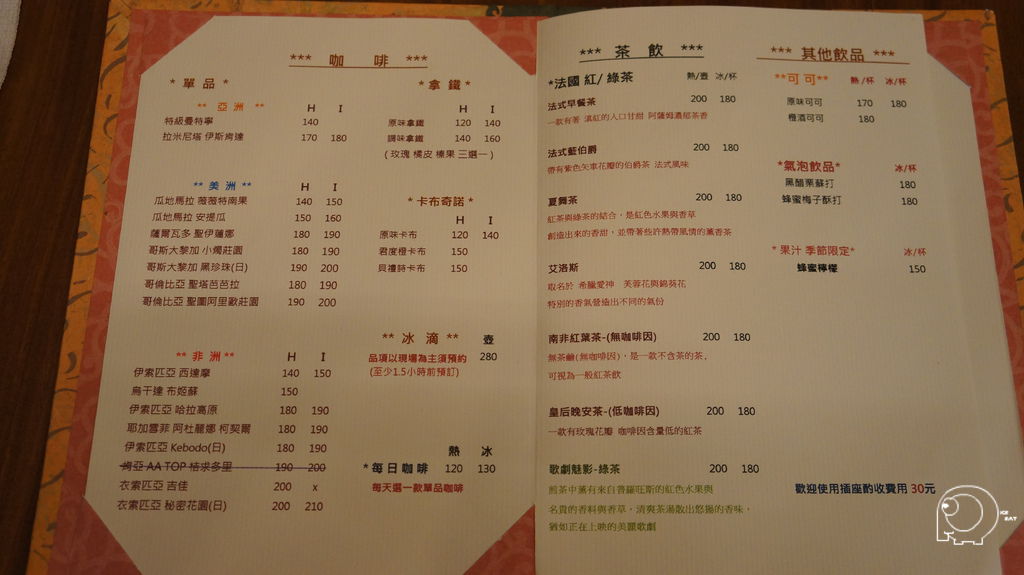 *** 咖 啡 ***
* 單 品 *
** 亞 洲 **
H I
特級曼特寧 140
拉米尼塔 伊斯肯達 170 180
** 美 洲 **
H I
瓜地馬拉 薇薇特南果 140 150
瓜地馬拉 安提瓜 150 160
薩爾瓦多 聖伊蓮娜 180 190
哥斯大黎加 小燭莊園 180 190
哥斯大黎加 黑珍珠(日) 190 200
哥倫比亞 聖塔芭芭拉 180 190
哥倫比亞 聖圖阿里歐莊園 190 200
** 非 洲 **
H I
伊索匹亞 西達摩 140 150
烏干達 布姬蘇 150
伊索匹亞 哈拉高原 180 190
耶加雪菲 阿杜麗娜 柯契爾 180 190
伊索匹亞 Kebodo(日) 180 190
肯亞 AA TOP 桔求多里 190 200
衣索匹亞 吉佳 200 x
衣索匹亞 秘密花園(日) 200 210
* 拿 鐵 *
H I
原味拿鐵 120 140
調味拿鐵 140 160
( 玫瑰 橘皮 榛果 三選一 )
* 卡布奇諾 *
H I
原味卡布 120 140
君度橙卡布 150
貝禮詩卡布 150
** 冰 滴 ** 壺
品項以現場為主須預約 280
(至少1.5小時前預訂)
熱 冰
* 每 日 咖 啡 120 130
每天選一款單品咖啡
*** 茶 飲 ***
*法國 紅/ 綠茶 熱/壺 冰/杯
法式早餐茶 200 180
一款有著 滇紅的入口甘甜 阿薩姆濃郁茶香
法式藍伯爵 200 180
帶有紫色矢車花瓣的伯爵茶 法式風味
夏舞茶 200 180
紅茶與綠茶的結合，是紅色水果與香草
創造出來的香甜，並帶著些許熱帶風情的薰香茶
艾洛斯 200 180
取名於 希臘愛神 芙蓉花與錦葵花
特別的香氣營造出不同的氣份
南非紅葉茶-(無咖啡因) 200 180
無茶鹼(無咖啡因)，是一款不含茶的茶，
可視為一般紅茶飲
皇后晚安茶-(低咖啡因) 200 180
一款有玫瑰花瓣 咖啡因含量低的紅茶
歌劇魅影-綠茶 200 180
煎茶中薰有來自普羅旺斯的紅色水果與
名貴的香料與香草，清爽茶湯散出悠揚的香味，
猶如正在上映的美麗歌劇
*** 其他飲品 ***
** 可 可 ** 熱 /杯 冰/杯
原味可可 170 180
橙酒可可 180
*氣泡飲品* 冰/杯
黑醋栗蘇打 180
蜂蜜梅子酥打 180
* 果汁 季節限定* 冰/杯
蜂蜜檸檬 150
歡迎使用插座酌收費用 30元
ICE
EAT